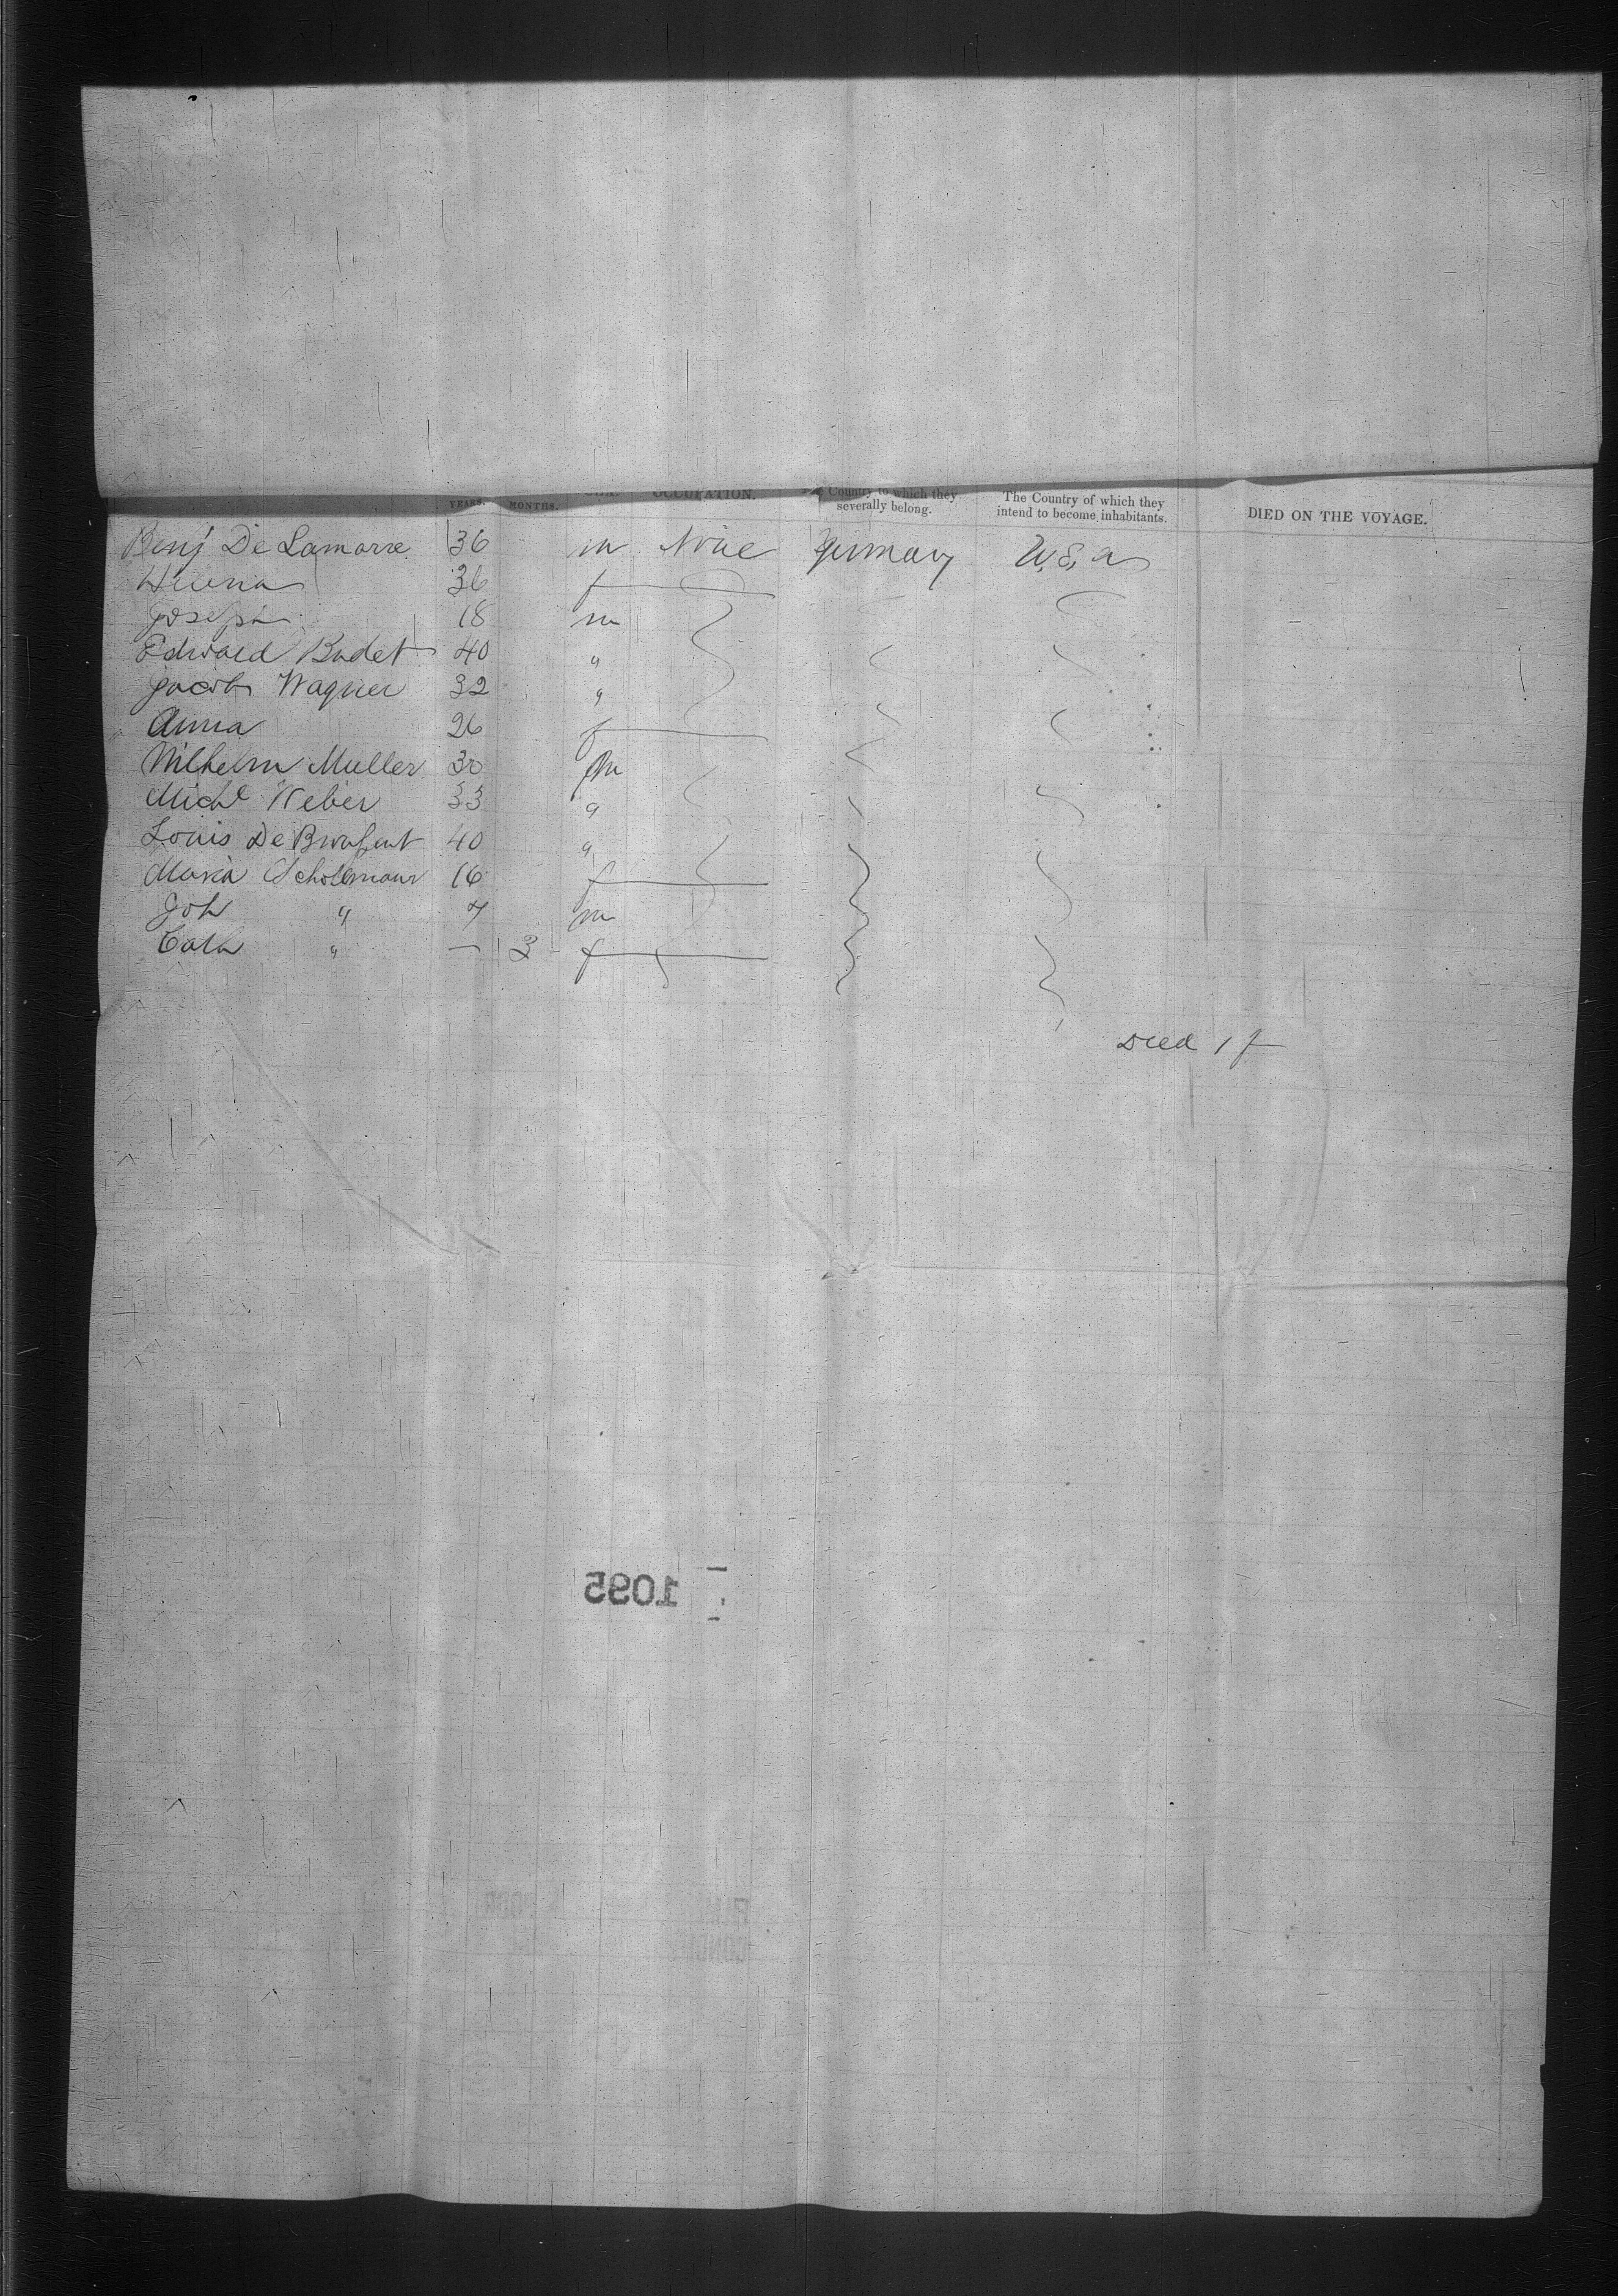 YEARS. MONTHS. SEX. OCCUPATION. Country to which they severally belong. The Country of which they intend to become inhabitants. DIED ON THE VOYAGE.
Benj De Lamarre 36 m None Germany U.S.a
36 f
Joseph 18 m
Edward Badet 40 "
Jacob Wagner 32 "
Anna 26 f
Wilhelm Muller 30 m
Michl Weber 33 "
Louis De 40 "
Maria 16 f
Joh " 7 m
Cath " — 3 f
Died 1 f
1095